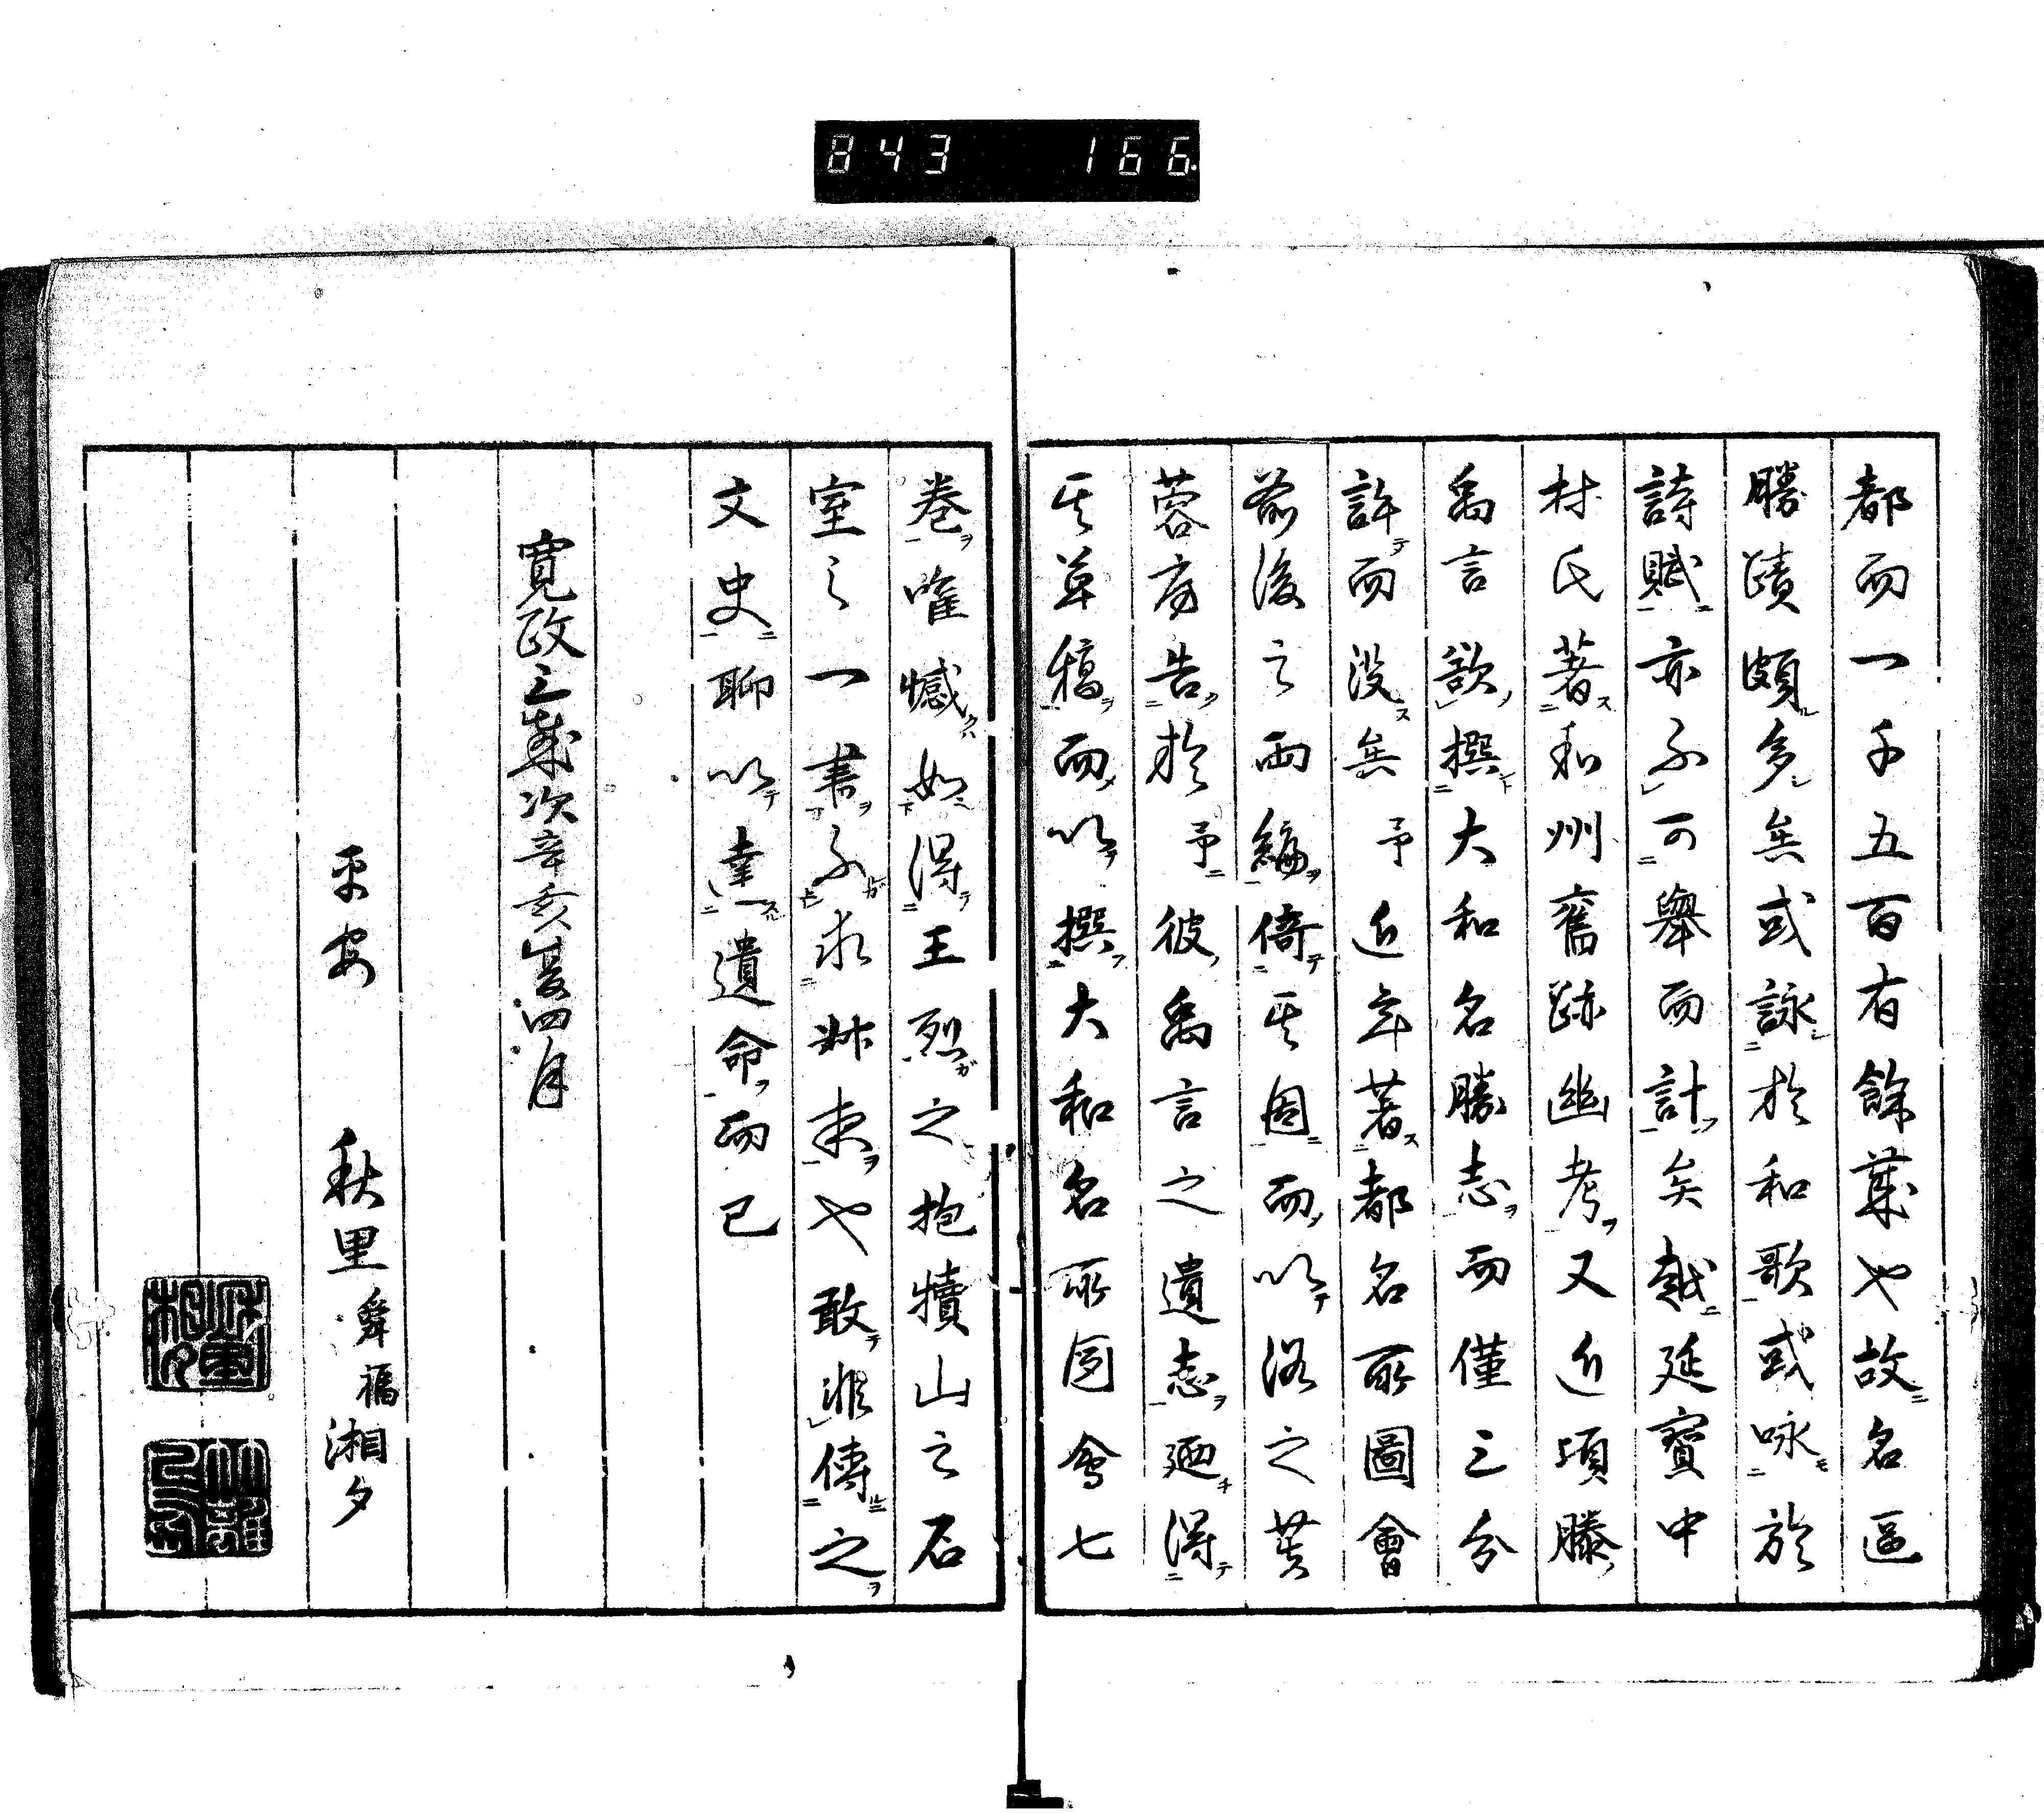 843 166
都而一千五百有餘歳也故名區
勝蹟頗多矣或詠於和歌或咏於
詩賦亦不可舉而計矣越延寶中
林氏著和州舊跡幽考又近頃滕
禹言欲撰大和名勝志而僅三分
許而没矣予近年著都名所圖會
前後之両編倚其因而以洛之芸
蓉房告於予彼禹言之遺志廼得
其草稿而以撰大和名所図會七
巻唯憾如得王烈之抱犢山之石
室之一書不求叔未也敢非傳之
文史聊以達遺命而已
寛政三歳次辛亥夏四月
平安 秋里舜福湘夕